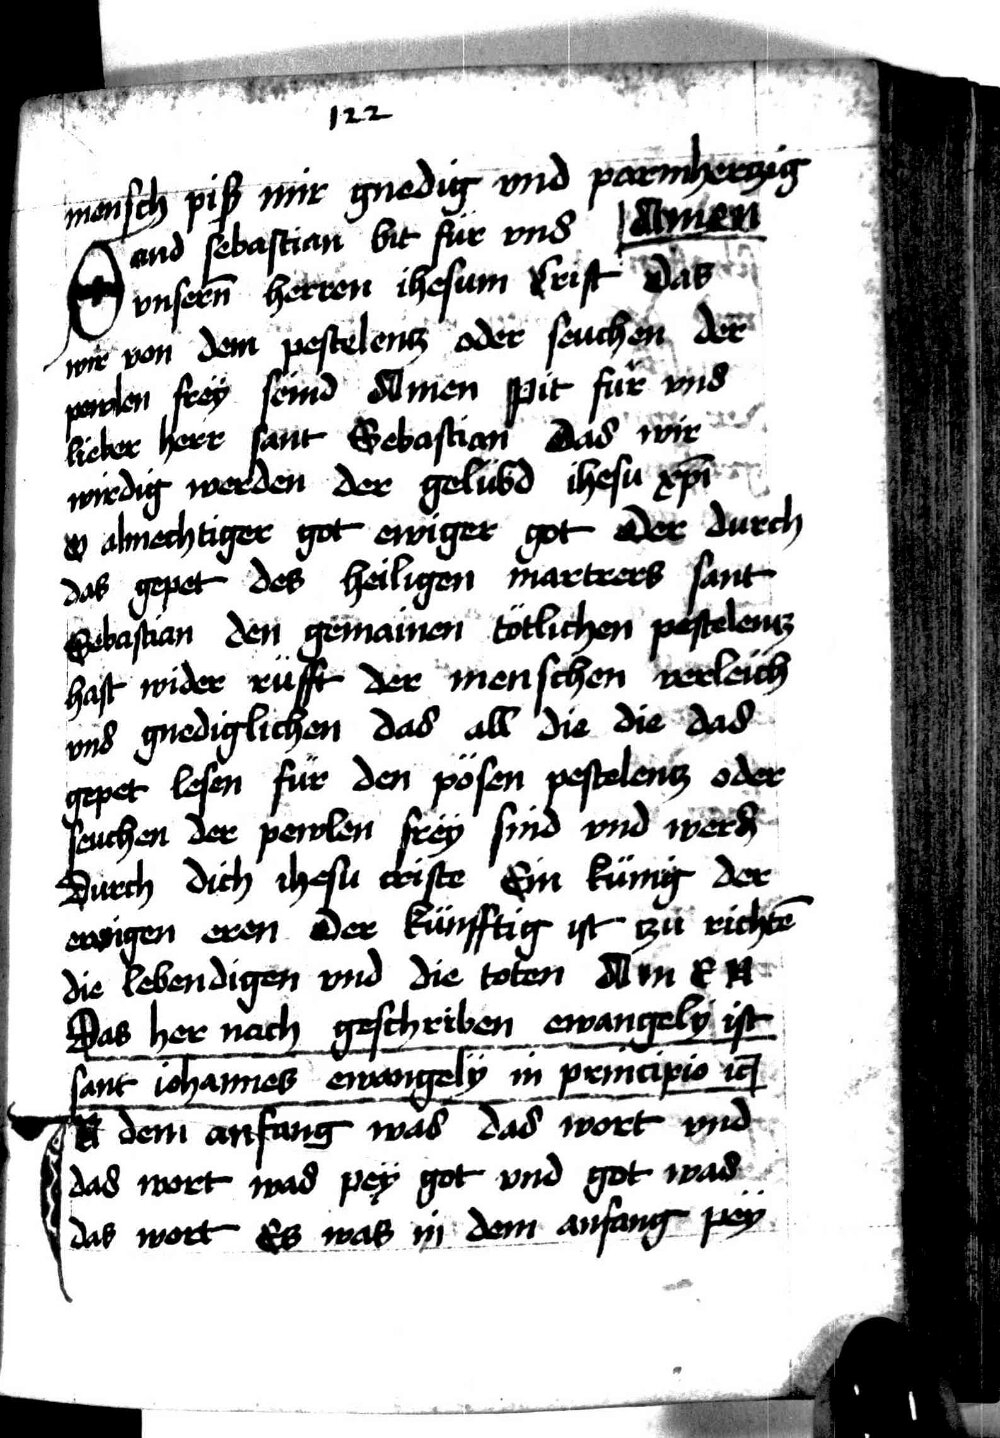 122
mensch piß mir gnedig vnd parmherczig
Sand sebastian bit für vns Amen
vnsern̄ herren ihesum Crist Das
wir von dem pestelentz oder seuchen der
pewlen frey seind Amen Pit für vns
lieber herr sant Sebastian Das wir
wirdig werden der gelübd ihesu xp̄i
O almechtiger got ewiger got Der durch
das gepet des heiligen martrers sant
Sebastian den gemainen tötlichen pestelentz
hast wider rüfft der menschen verleich
vns gnediglichen das all die die das
gepet lesen für den pösen pestelentz oder
seuchen der pewlen frëy sind vnd werdn
Durch dich ihesu criste Ein künig der
ewigen eren Der künfftig ist zu richtē
die lebendigen vnd die toten AmEN
Das her nach geschriben ewangely ist
sant iohannes ewangelÿ in principio ic
IN dem anfang was das wort vnd
das wort was pey got vnd got was
das wort Es was in dem anfang pëy